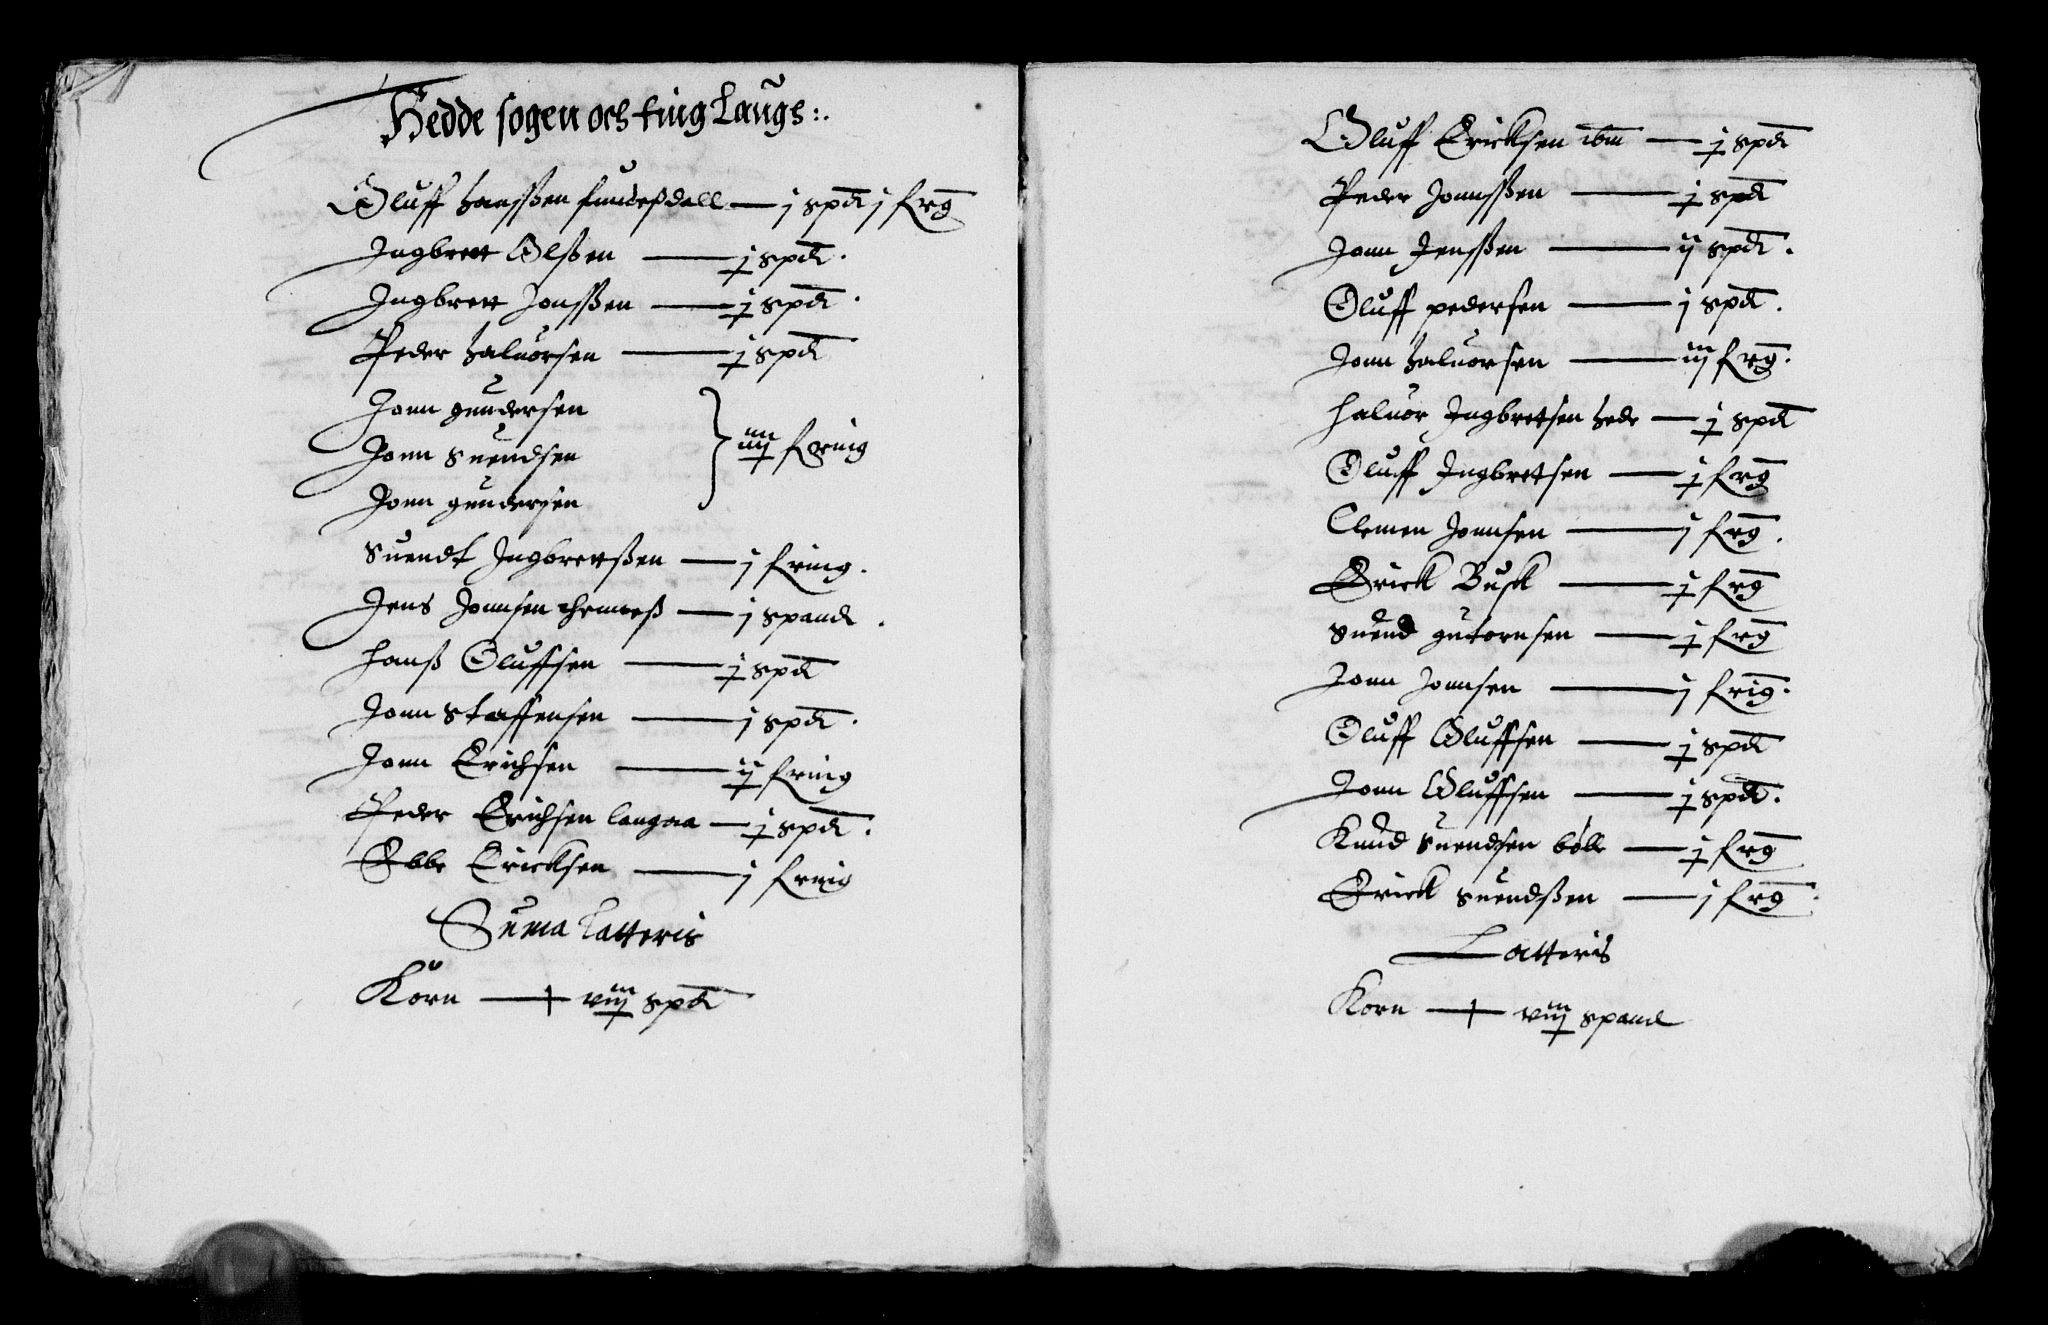 Hedde sogen och ting Laugs:.
Oluff hanssen funesdall — j spd j frg
Ingbrett Olssen — j spd.
Ingbrett Jonssen — j spd.
Peder haluorsen — j spd
Jonn gundersen
Jonn Suendsen } iiij fering
Jonn gundersen
Suendt Ingbrettssen — j fring.
Jens Jonnsen — j spand.
Hanss Oluffsen — j spd
Jonn Staffensen — j spd.
Jonn Erichsen — ij fring
Peder Erichsen langaa — j spd.
Ebbe Ericksen — j fring
Suma Latteris
Korn — viij spd
Oluff Ericksen ibm — j spd
Peder Jonnssen — j spd
Jonn Jenssen — ij spd.
Oluff pedersen — j spd.
Jonn haluorsen — iij frg.
Haluor Ingbretsen hede — j spd
Oluff Ingbretsen — j frg
Clemen Jonnsen — j frg.
Erick Busk — j frg
Suend gutornsen — j frg
Jonn Jonnsen — j frig.
Oluff Oluffsen — j spd
Jonn Oluffsen — j spd.
Knud Suendsen böle — j frg
Erick Suendssen — j frg.
Latteris
Korn — viij spand